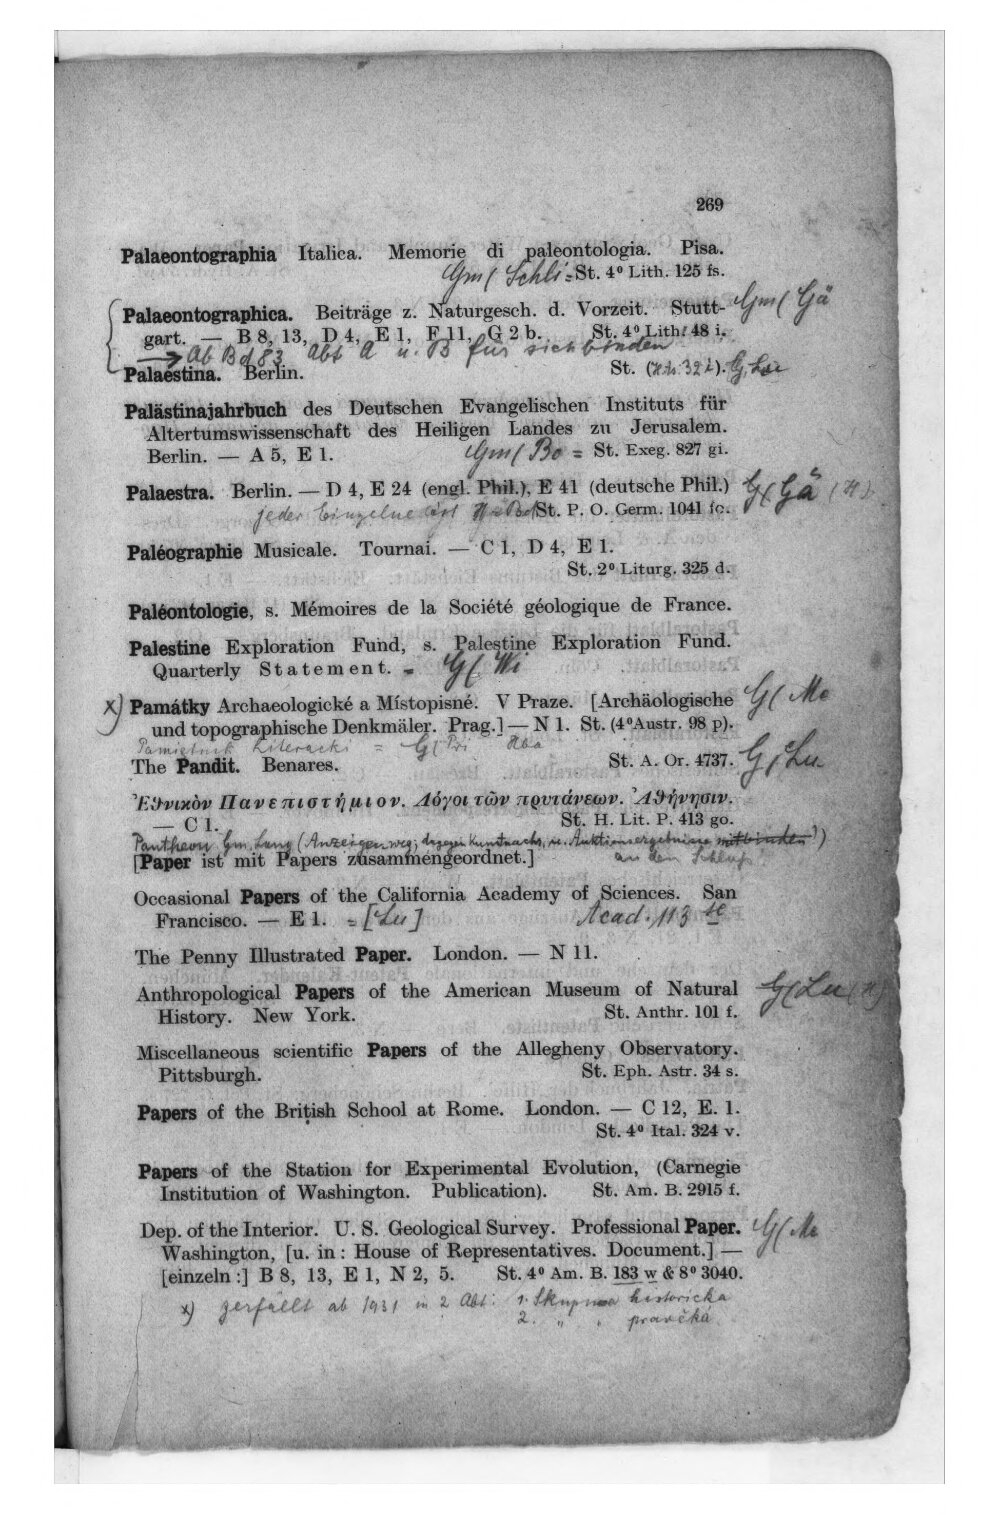 269
Palaeontographia Italica. Memorie di paleontologia. Pisa.
Gm( Schli = St. 4° Lith. 125 fs.
Palaeontographica. Beiträge z. Naturgesch. d. Vorzeit. Stutt- Gm( Gä
gart. — B 8, 13, D 4, E 1, F 11, G 2 b. St. 4° Lith. 48 i.
→ Ab Bd 83 Abt A u. B für sich binden
Palaestina. Berlin. St. (H.to. 32 i). G, Lu
Palästinajahrbuch des Deutschen Evangelischen Instituts für
Altertumswissenschaft des Heiligen Landes zu Jerusalem.
Berlin. — A 5, E 1. Gm( Bo = St. Exeg. 827 gi.
Palaestra. Berlin. — D 4, E 24 (engl. Phil.), E 41 (deutsche Phil.) G( Gä (H)
jeder Einzelne St. P. O. Germ. 1041 fc.
Paléographie Musicale. Tournai. — C 1, D 4, E 1.
St. 2° Liturg. 325 d.
Paléontologie, s. Mémoires de la Société géologique de France.
Palestine Exploration Fund, s. Palestine Exploration Fund.
Quarterly Statement. = G( Wi
x) Památky Archaeologické a Místopisné. V Praze. [Archäologische G( Me
und topographische Denkmäler. Prag.] — N 1. St. (4° Austr. 98 p).
Pamiętnik Literacki = G( Pri
The Pandit. Benares. St. A. Or. 4737. G( Lu
Ἐθνικὸν Πανεπιστήμιον. Λόγοι τῶν πρυτάνεων. Ἀθήνησιν.
— C 1. St. H. Lit. P. 413 go.
Pantheon Gm, Lang (Anzeigen weg, dagegen Kunstnachr. u. Auktionsergebnisse mitbinden!)
an den Schluß
[Paper ist mit Papers zusammengeordnet.]
Occasional Papers of the California Academy of Sciences. San
Francisco. — E 1. = [Lu] Acad. 113 te
The Penny Illustrated Paper. London. — N 11.
Anthropological Papers of the American Museum of Natural G( Lu (H)
History. New York. St. Anthr. 101 f.
Miscellaneous scientific Papers of the Allegheny Observatory.
Pittsburgh. St. Eph. Astr. 34 s.
Papers of the British School at Rome. London. — C 12, E. 1.
St. 4° Ital. 324 v.
Papers of the Station for Experimental Evolution, (Carnegie
Institution of Washington. Publication). St. Am. B. 2915 f.
Dep. of the Interior. U. S. Geological Survey. Professional Paper. G( Me
Washington, [u. in: House of Representatives. Document.] —
[einzeln:] B 8, 13, E 1, N 2, 5. St. 4° Am. B. 183 w & 8° 3040.
x) zerfällt ab 1931 in 2 Abt: 1. Skupina historická
2. " " pravěká